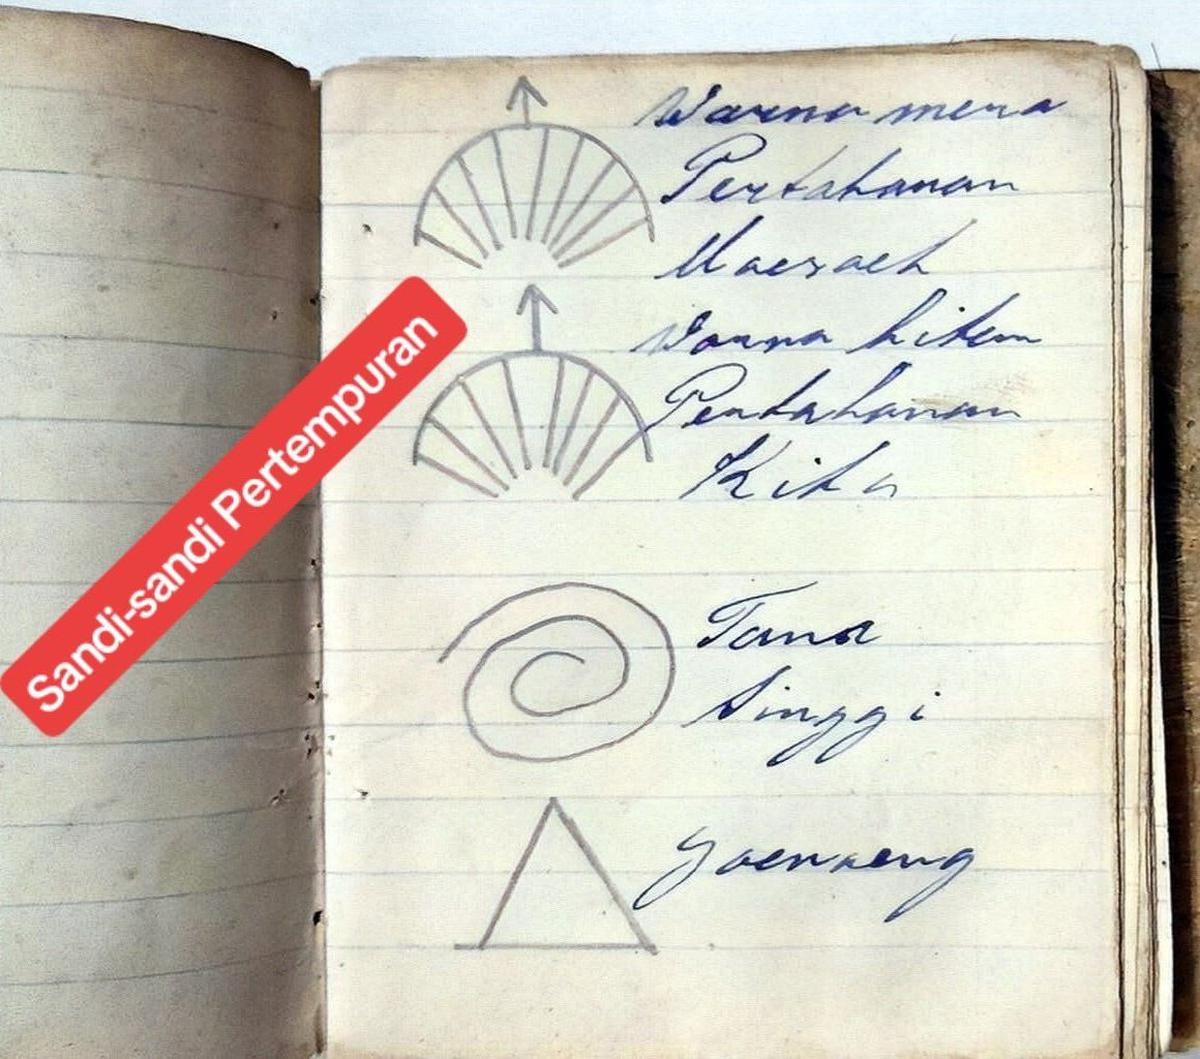 Sandi-sandi Pertempuran
Warna mera
Pertahanan
Moesoeh
Warna hitam
Pertahanan
Kita
Tana
tinggi
Goenoeng